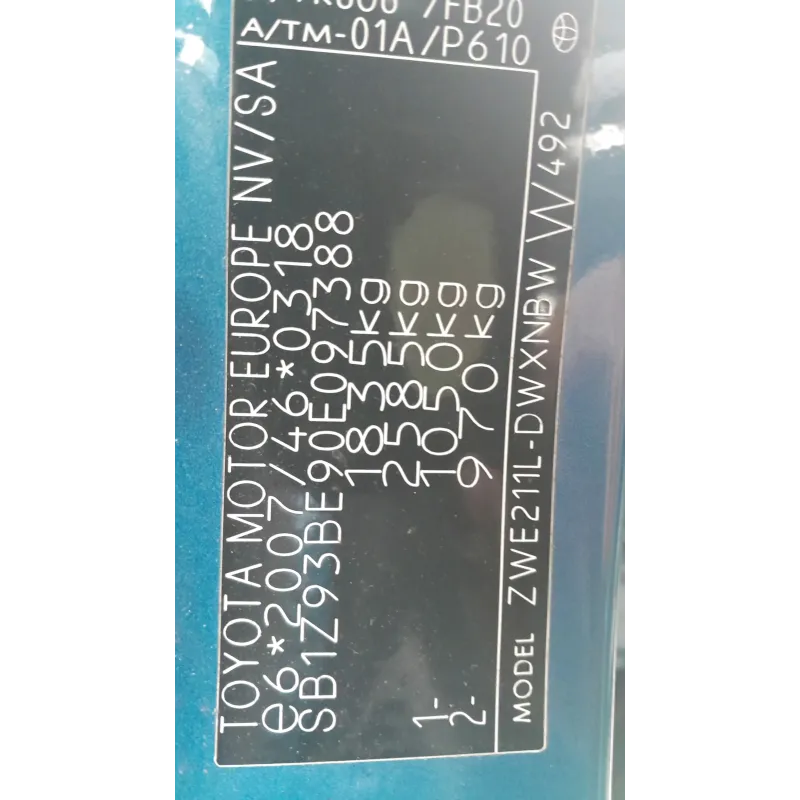 TOYOTA MOTOR EUROPE NV/SA
e6*2007/46*0318
SB1Z93BE90E097388
1835kg
2585kg
1- 1050kg
2- 970kg
MODEL ZWE211L-DWXNBW W492
/FB20
A/TM-01A/P610